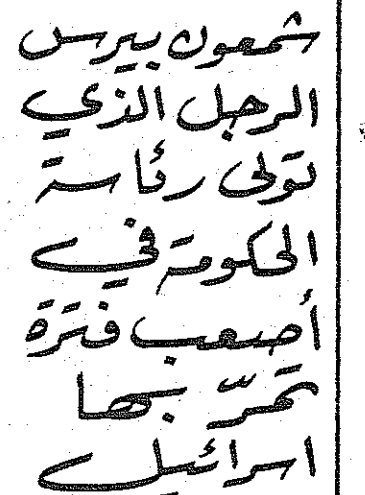 شمعون بيرس
الرجل الذي
تولى رئاسة
الحكومة في
أصعب فترة
تمرّ بها
اسرائيل